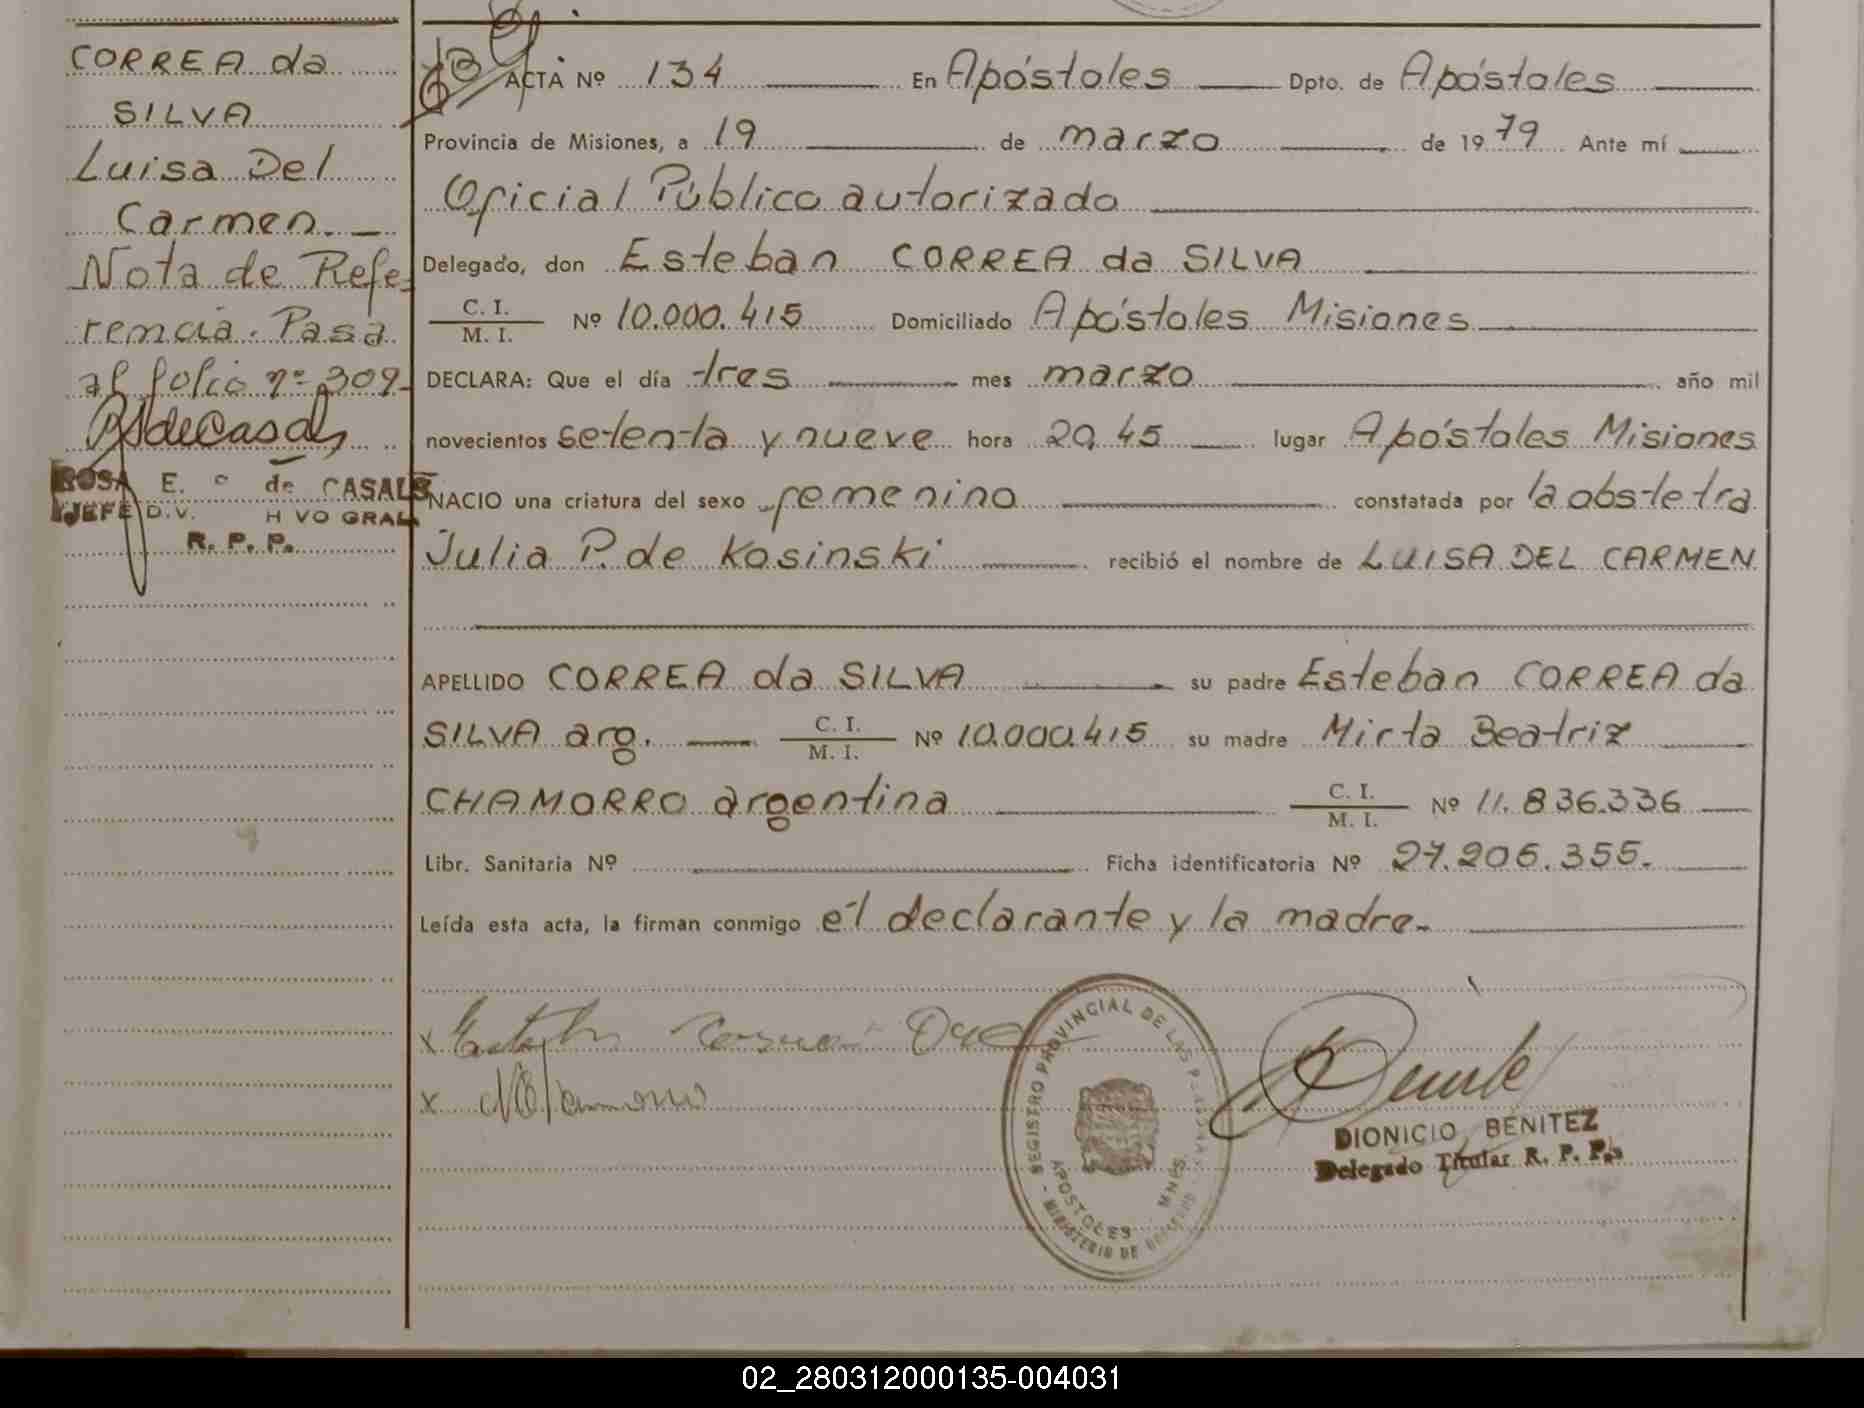 CORREA da
SILVA
Luisa Del
Carmen. —
Nota de Refe-
rencia. Pasa
al folio nº 309-
ROSA E. de CASALS
JEFE DIV. H VO GRAL
R. P. P.
ACTA Nº 134 En Apóstoles Dpto. de Apóstoles
Provincia de Misiones, a 19 de marzo de 1979 Ante mí
Oficial Público autorizado
Delegado, don Esteban CORREA da SILVA
C. I.
M. I. Nº 10.000.415 Domiciliado Apóstoles Misiones
DECLARA: Que el día tres mes marzo año mil
novecientos setenta y nueve hora 20,45 lugar Apóstoles Misiones
NACIO una criatura del sexo femenino constatada por la obstetra
Julia P. de Kosinski recibió el nombre de LUISA DEL CARMEN
APELLIDO CORREA da SILVA su padre Esteban CORREA da
SILVA arg. C. I.
M. I. Nº 10.000.415 su madre Mirta Beatriz
CHAMORRO argentina C. I.
M. I. Nº 11.836.336
Libr. Sanitaria Nº Ficha identificatoria Nº 27.206.355.
Leída esta acta, la firman conmigo el declarante y la madre.
REGISTRO PROVINCIAL DE LAS
APOSTOLES MNES.
MINISTERIO DE
DIONICIO BENITEZ
Delegado Titular R. P. P.
02_280312000135-004031